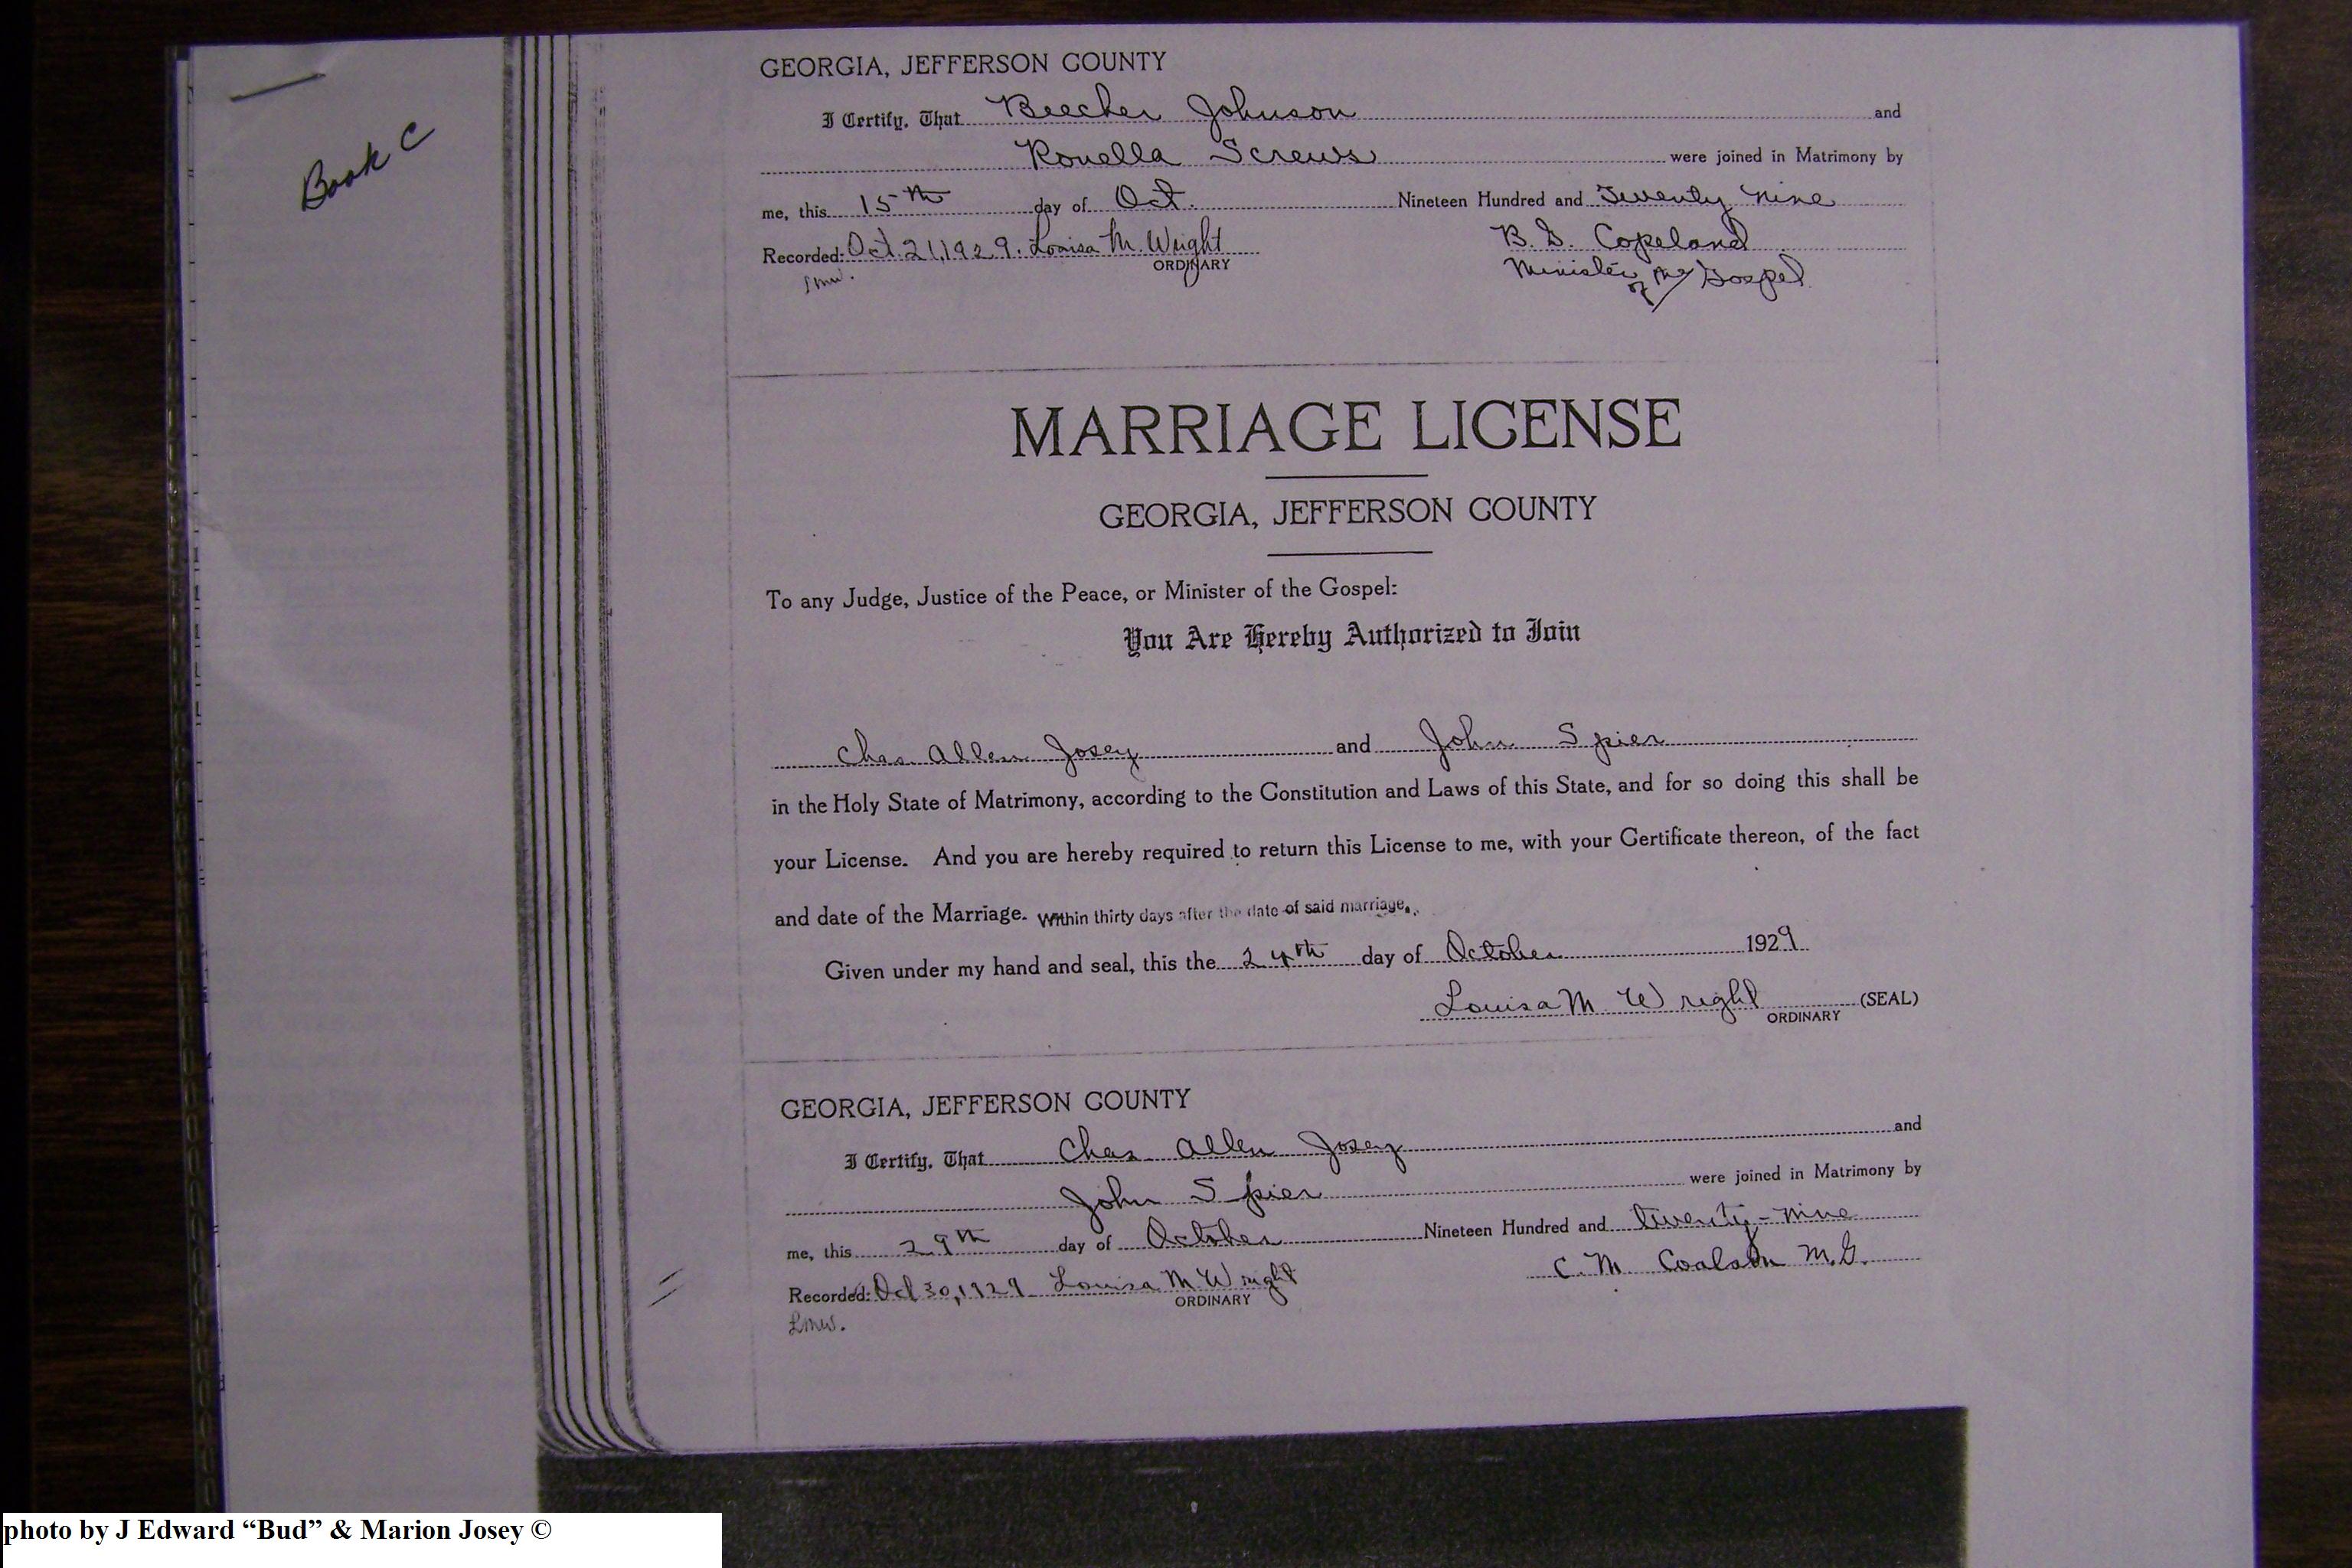 Book C
GEORGIA, JEFFERSON COUNTY
I Certify, That Beecher Johnson and
Rouella Screws were joined in Matrimony by
me, this 15th day of Oct. Nineteen Hundred and Twenty Nine
Recorded: Oct. 21, 1929. Louisa M. Wright B. G. Copeland
ORDINARY
lmw. Minister of the Gospel
MARRIAGE LICENSE
GEORGIA, JEFFERSON COUNTY
To any Judge, Justice of the Peace, or Minister of the Gospel:
You Are Hereby Authorized to Join
Chas. Allen Josey and John Spier
in the Holy State of Matrimony, according to the Constitution and Laws of this State, and for so doing this shall be
your License. And you are hereby required to return this License to me, with your Certificate thereon, of the fact
and date of the Marriage. Within thirty days after the date of said marriage.
Given under my hand and seal, this the 24th day of October 1929
Louisa M Wright (SEAL)
ORDINARY
GEORGIA, JEFFERSON COUNTY
I Certify, That Chas Allen Josey and
John Spier were joined in Matrimony by
me, this 29th day of October Nineteen Hundred and twenty-nine
Recorded: Oct 30, 1929 Louisa M Wright C. M. Coalson M.G.
ORDINARY
Lmw.
photo by J Edward “Bud” & Marion Josey ©